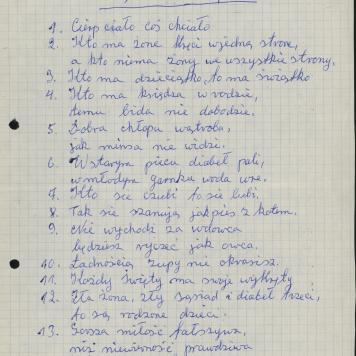 1. Cierp ciało coś chciało
2. Kto ma żone kręci w jedną strone,
a kto niema żony we wszystkie strony.
3. Kto ma dzieciątko, to ma świątko
4. Kto ma księdza w rodzie,
temu bida nie dobodzie.
5. Dobra chłopu wątroba,
jak minsa nie widzi.
6. W starym piecu diabeł pali,
w młodym garnku woda wre.
7. Kto sie czubi to sie lubi,
8. Tak sie szanują jak pies z kotem.
9. Nie wychodź za wdowca
będziesz ryczeć jak owca.
10. Ładnością zupy nie okrasisz.
11. Każdy święty ma swoje wykręty
12. Zła żona, zły sąsiad i diabeł trzeci,
to są rodzone dzieci.
13. Gorsza miłość fałszywa,
niż niewinność prawdziwa